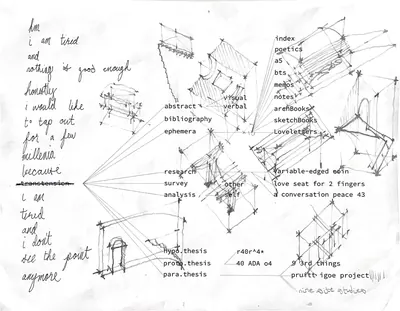 hm
i am tired
and
nothing is good enough
honestly
i would like
to tap out
for a few
millenia
because
transtension
i am
tired
and
i don't
see the point
anymore
abstract
bibliography
ephemera
visual
verbal
index
poetics
a5
bts
memos
notes
arenBooks
sketchBooks
Loveletters
research
survey
analysis
other
self
variable-edged coin
love seat for 2 fingers
a conversation peace 43
hypo.thesis
proto.thesis
para.thesis
r40r^4*
40 ADA o4
9 3rd things
pruitt igoe project
nine site studies